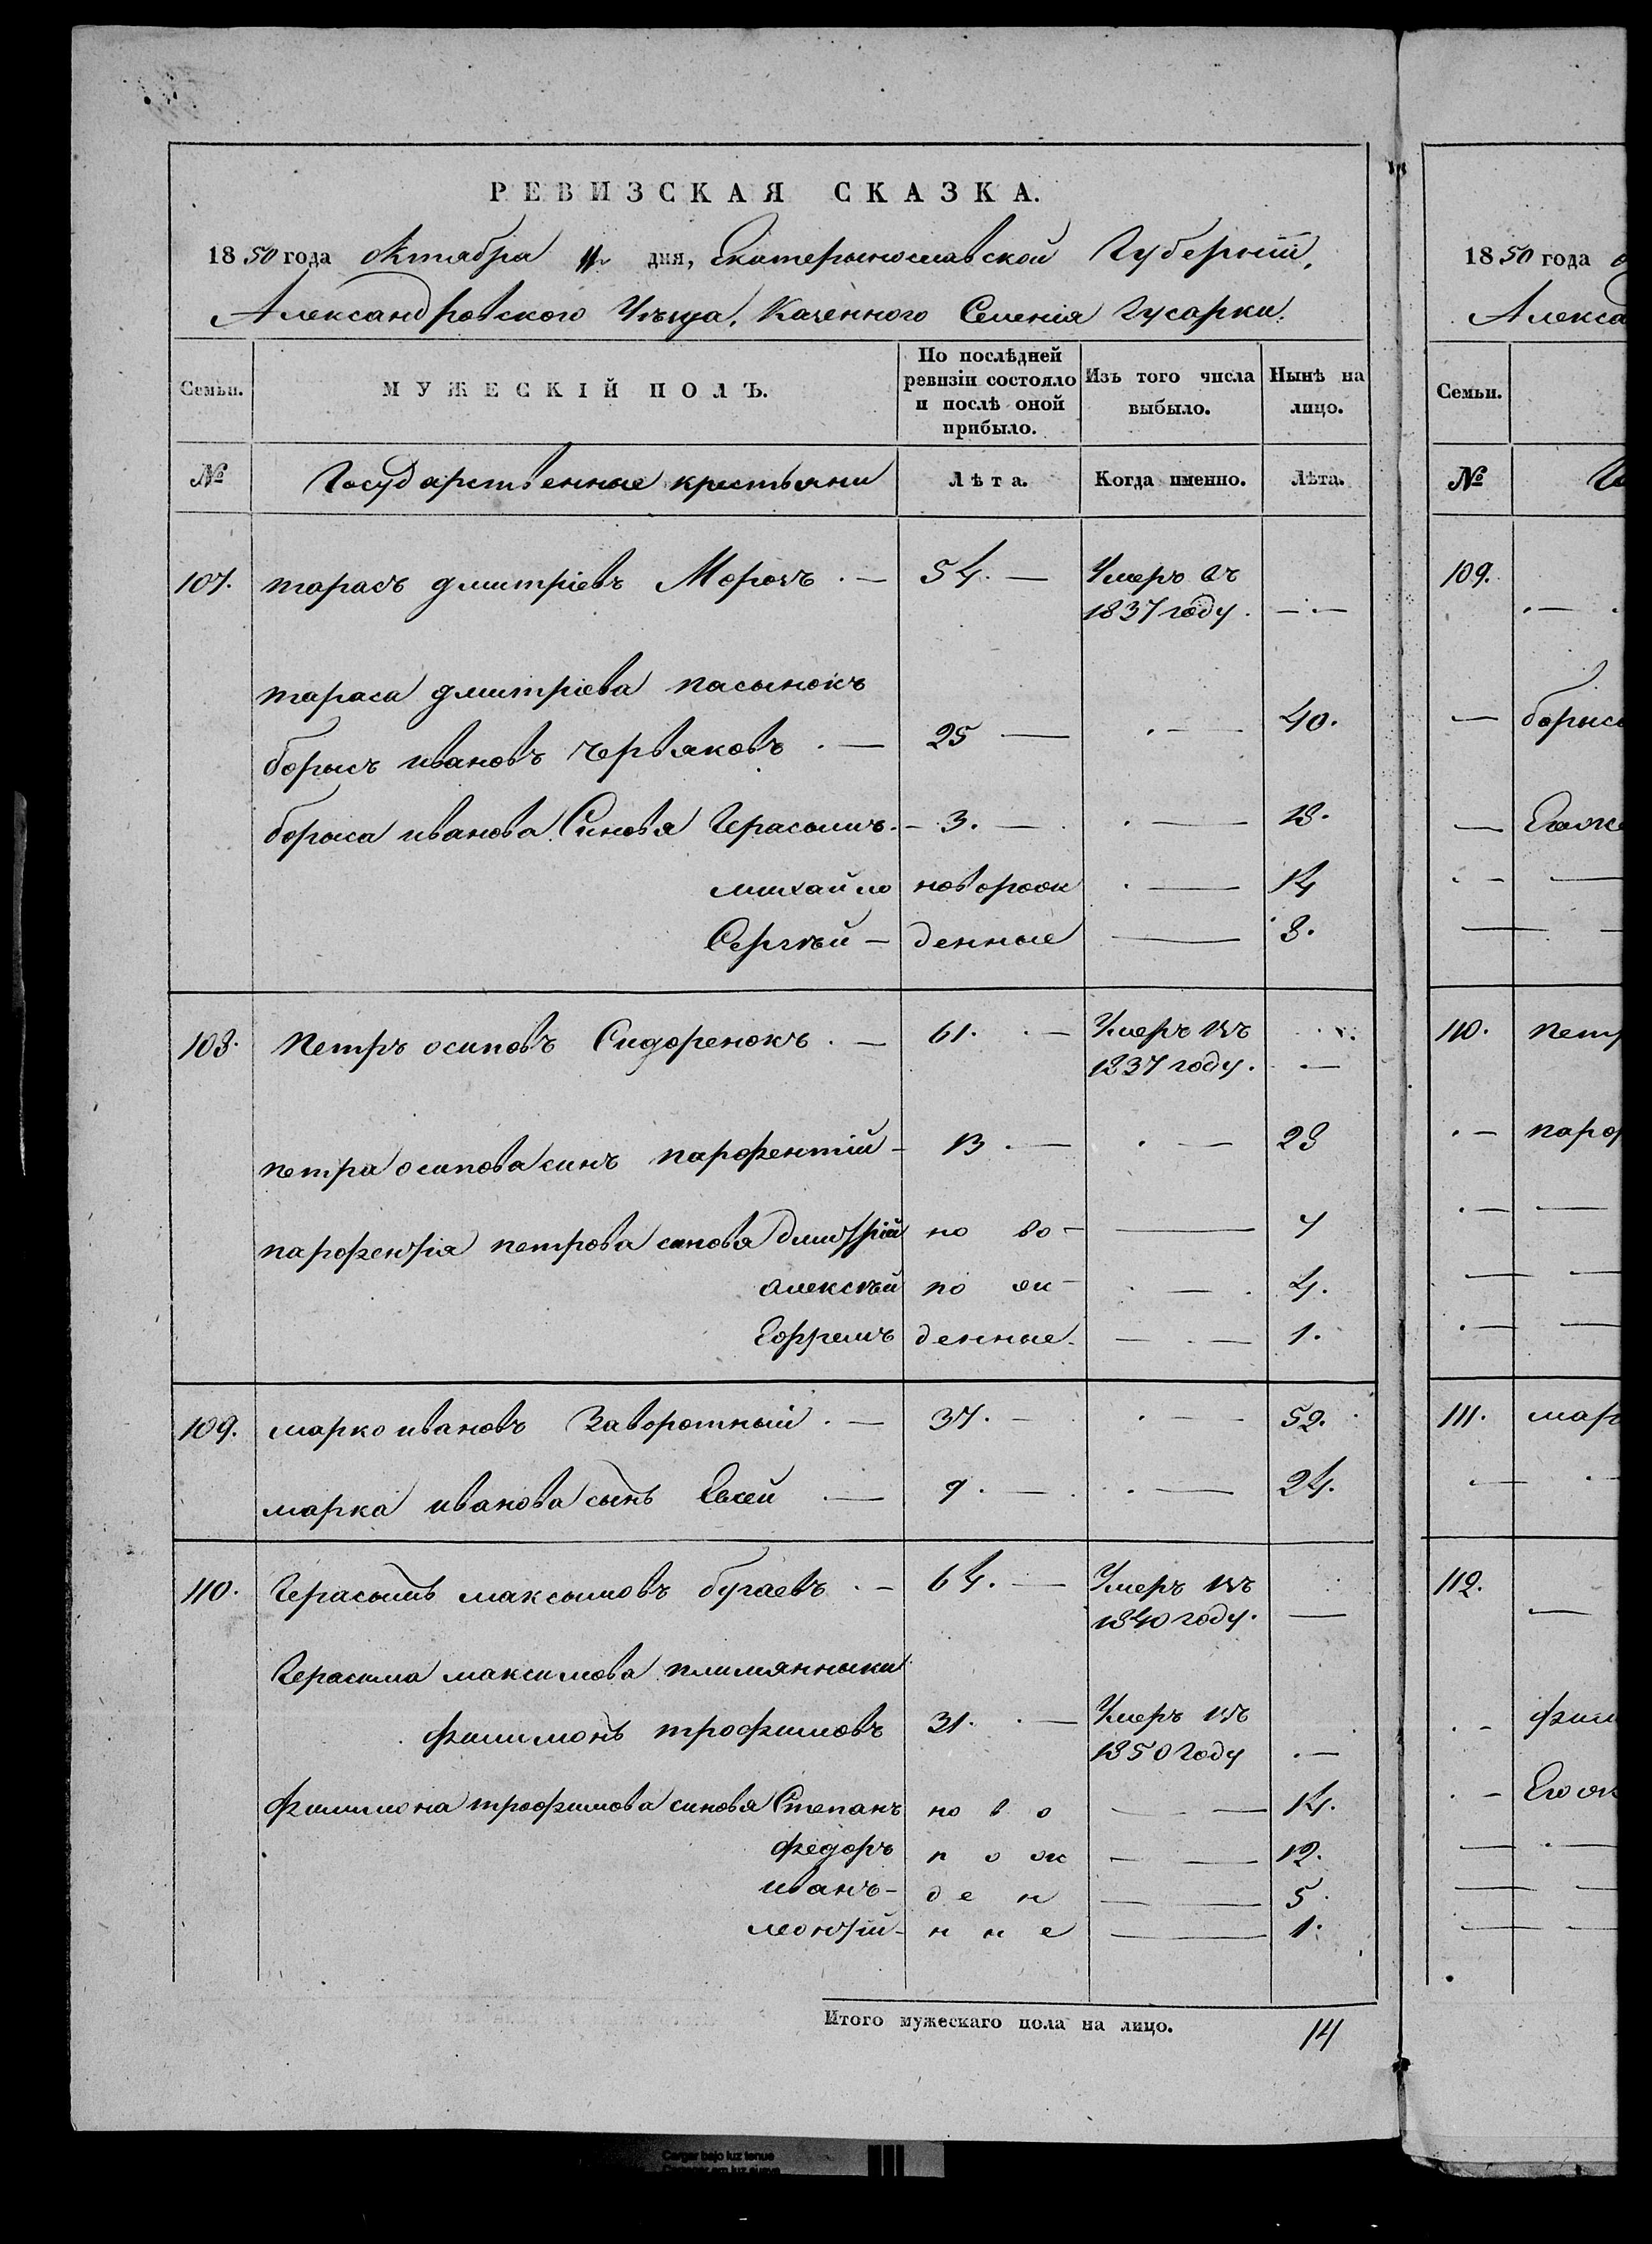 РЕВИЗСКАЯ СКАЗКА.
1850 года Октября 11 дня, Екатерынославской Губерніи,
Александровского Уѣзда, Казенного Селенія Гусарки.
Семьи.
МУЖЕСКІЙ ПОЛЪ.
По послѣдней ревизіи состояло и послѣ оной прибыло.
Изъ того числа выбыло.
Нынѣ на лицо.
№ Государственные крестьяни Лѣта. Когда именно. Лѣта.
107. тарасъ дмитріевъ Морозъ . — 54. — Умеръ въ
1837 году. — . —
тараса дмитріева пасынокъ
борысъ ивановъ червяковъ . — 25 — . — 40.
борыса иванова Синовя Герасымъ. — 3. — . — 18.
михайло новорож . — 14
Сергѣй — денные — 8.
108. Петръ осиповъ Сидоренокъ . — 61. . — Умеръ въ
1837 году. . —
петра осипова синъ парфентій — 13 . — . — 28
парфентія петрова синовя дмитрій но во — — 7
алексѣй ро ж — . — . 4.
Ефремъ денные. — . — 1.
109. марко ивановъ Заворотный . — 37. — . — 52.
марка иванова сынъ Евсей . — 9. — . . — 24.
110. Герасымъ максымовъ бугаевъ . — 64. — Умеръ въ
1840 году. —
Герасима максимова племянныки
филимонъ трофимовъ 31. . — Умеръ въ
1850 году . —
филимона трофимова синовя Степанъ но в о — — 14.
федоръ р о ж — — 12.
иванъ — д е н — — 5.
леонтій — н ы е — 1.
Итого мужескаго пола на лицо. 14
1850 года
Алекса
Семьи.
№
109.
— борыс
— Егож
110. петр
. — пароф
111. мар
112.
. — фили
. — Егож